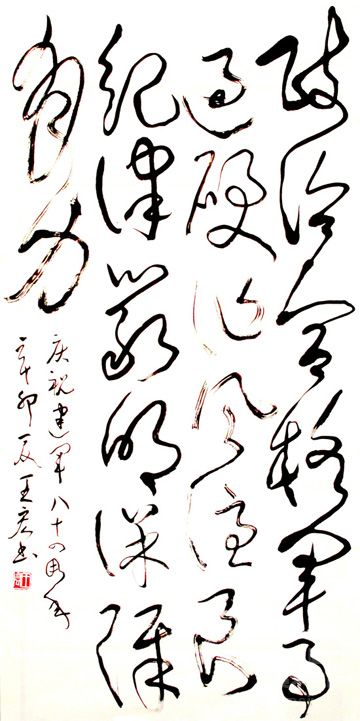 政治合格军事
过硬作风优良
纪律严明保障
有力
庆祝建军八十四周年
辛卯夏王书